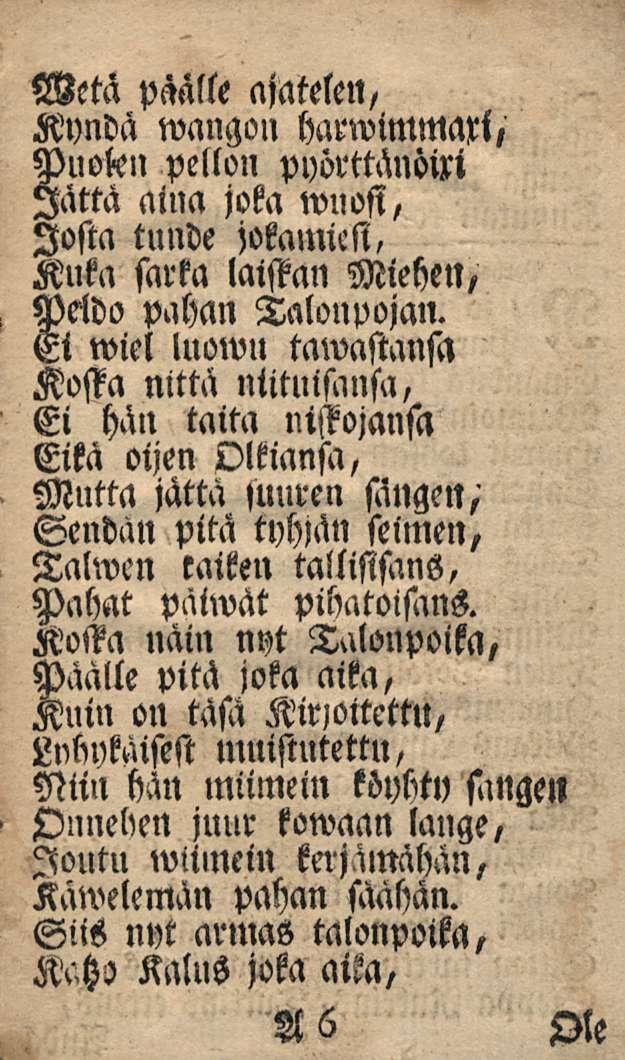 Wetä päälle ajatelen,
Kyndä wangon harwimmaxi,
Puolen pellon pyörttänöixi
Jättä aina joka wuosi,
Josta tunde jokamiesi,
Kuka sarka laiskan Miehen,
Peldo pahan Talonpojan.
Ei wiel luowu tawastansa
Koska nittä niituisansa,
Ei hän taita niskojansa
Eikä oijen Olkiansa,
Mutta jättä suuren sängen,
Sendän pitä tyhjän seimen,
Talwen kaiken tallisisans,
Pahat päiwät pihatoisans.
Koska näin nyt Talonpoika,
Päälle pitä joka aika,
Kuin on täsä Kirjoitettu,
Lyhykäisest muistutettu,
Niin hän miimein köyhty sangen
Onnehen juur kowaan lange,
Joutu wiimein kerjämähän,
Käwelemän pahan säähän.
Siis nyt armas talonpoika,
Katzo Kalus joka aika,
A 6
Ole